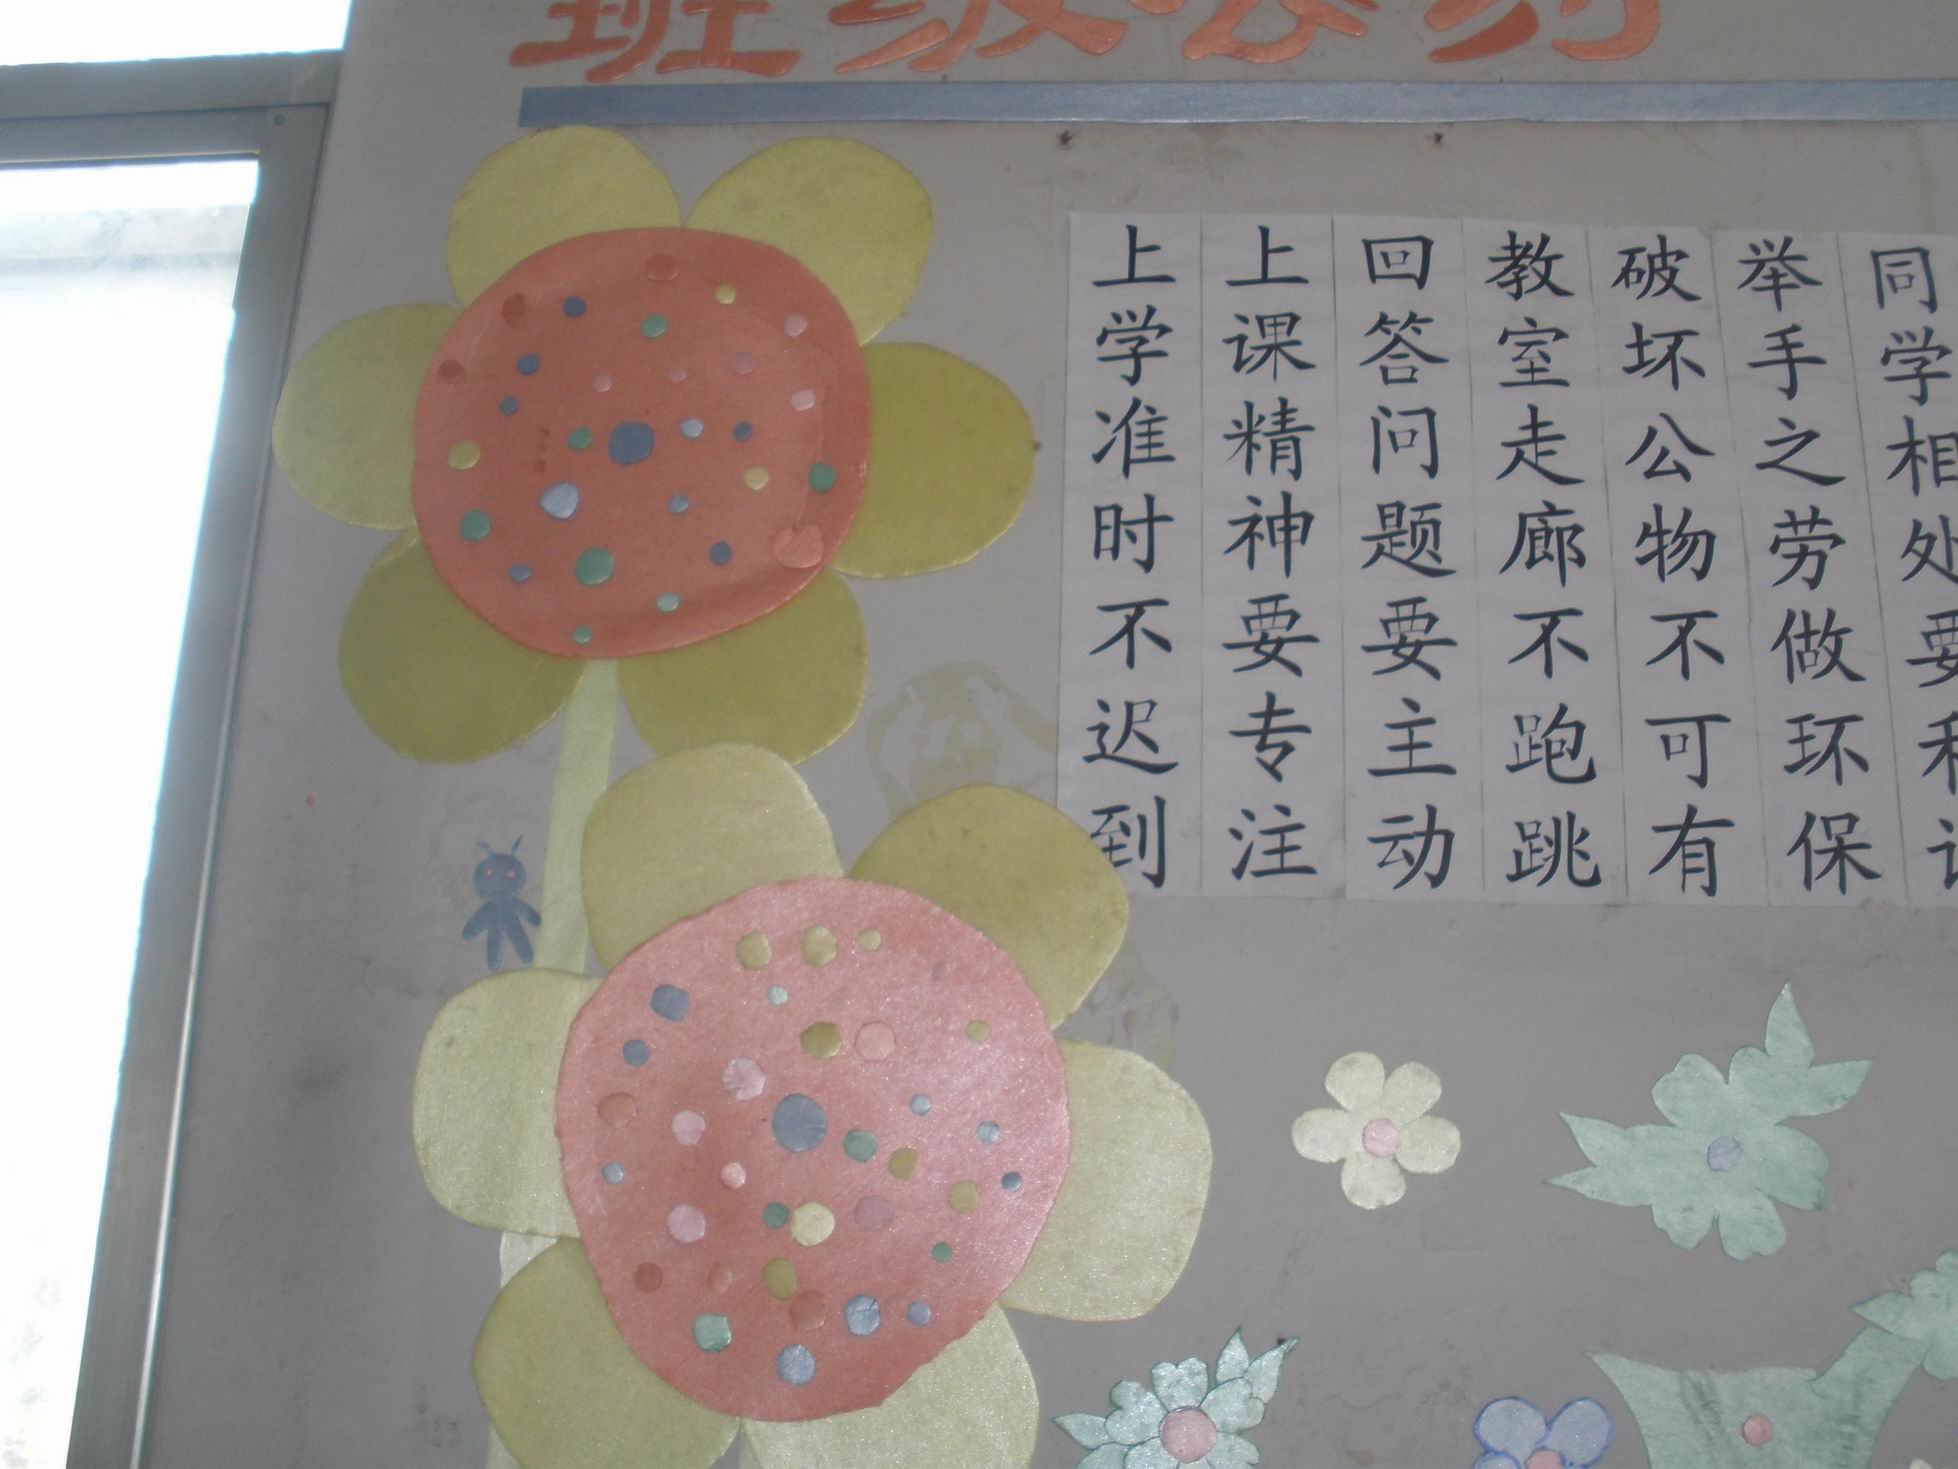 班级公约
上学准时不迟到
上课精神要专注
回答问题要主动
教室走廊不跑跳
破坏公物不可有
举手之劳做环保
同学相处要